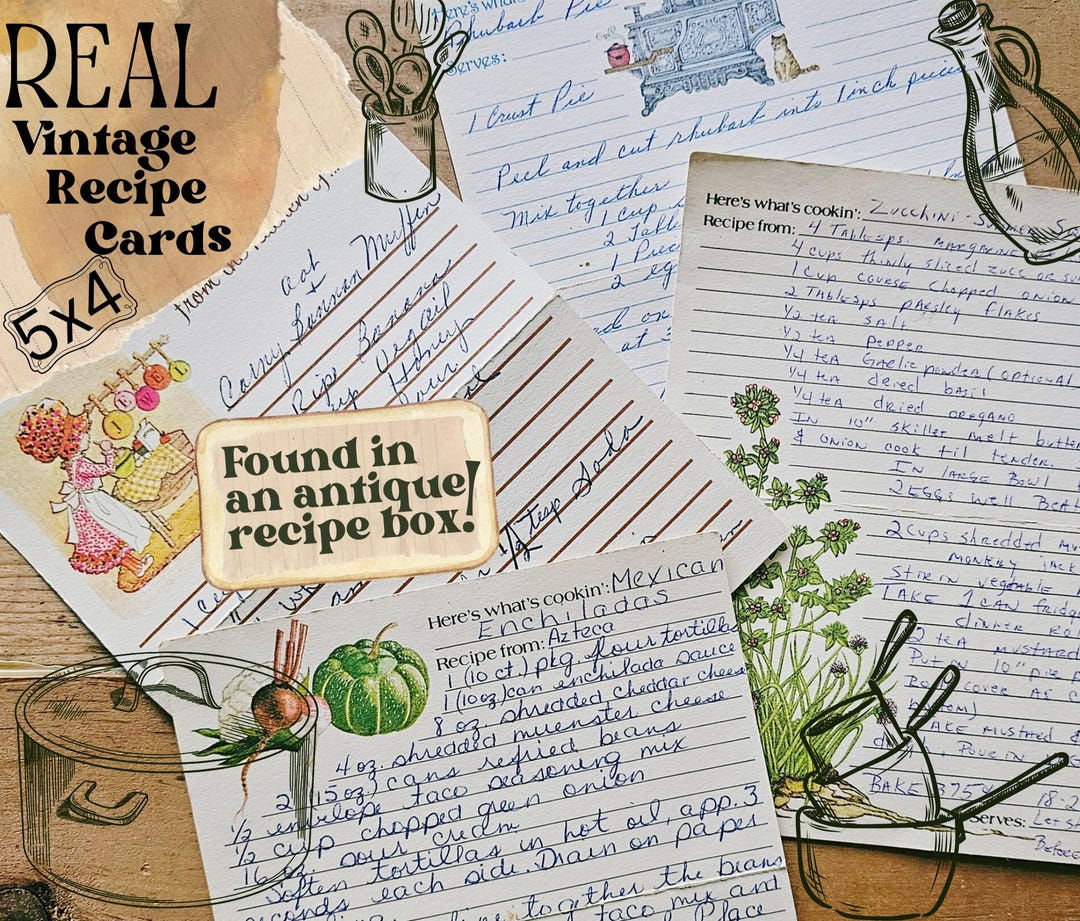 REAL
Vintage
Recipe
Cards
5x4
Found in
an antique
recipe box!
Here's what's
Rhubarb Pie
Serves:
1 Crust Pie
Peel and cut rhubarb into 1 inch pieces
Mix together
1 cup
2
2 eg
at 3
from the
Oat
Carry Bannan Muffin
Ripe Banana
Honey
1/2 tsp Soda
Here's what's cookin': Zucchini-
Recipe from: 4 Tablesps. margarine
4 cups thinly sliced zucc or
1 cup course chopped onion
2 Tablesps parsley flakes
1/2 tea salt
1/2 tea pepper
1/4 tea Garlic powder (optional
1/4 tea dried basil
1/4 tea dried oregano
In 10" skillet melt butter
& onion cook til tender.
In large Bowl
2 Eggs well Beat
2 cups shredded
monterey jack
Stir in vegetable
Take 1 can fridg
dinner ro
2 tea mustard
Put in 10" pie
cover as c
mustard
Pour in
BAKE 375° 18-2
Serves: Let s
Before
Here's what's cookin': Mexican
Enchiladas
Recipe from: Azteca
1 (10 ct.) pkg. flour tortillas
1 (10 oz) can enchilada sauce
8 oz. shredded cheddar cheese
4 oz. shredded muenster cheese
2 (15 oz) cans refried beans
1/2 envelope taco seasoning mix
1/2 cup chopped green onion
16 oz. sour cream
Soften tortillas in hot oil, app. 3
seconds each side. Drain on paper
together the beans
taco mix and
Place